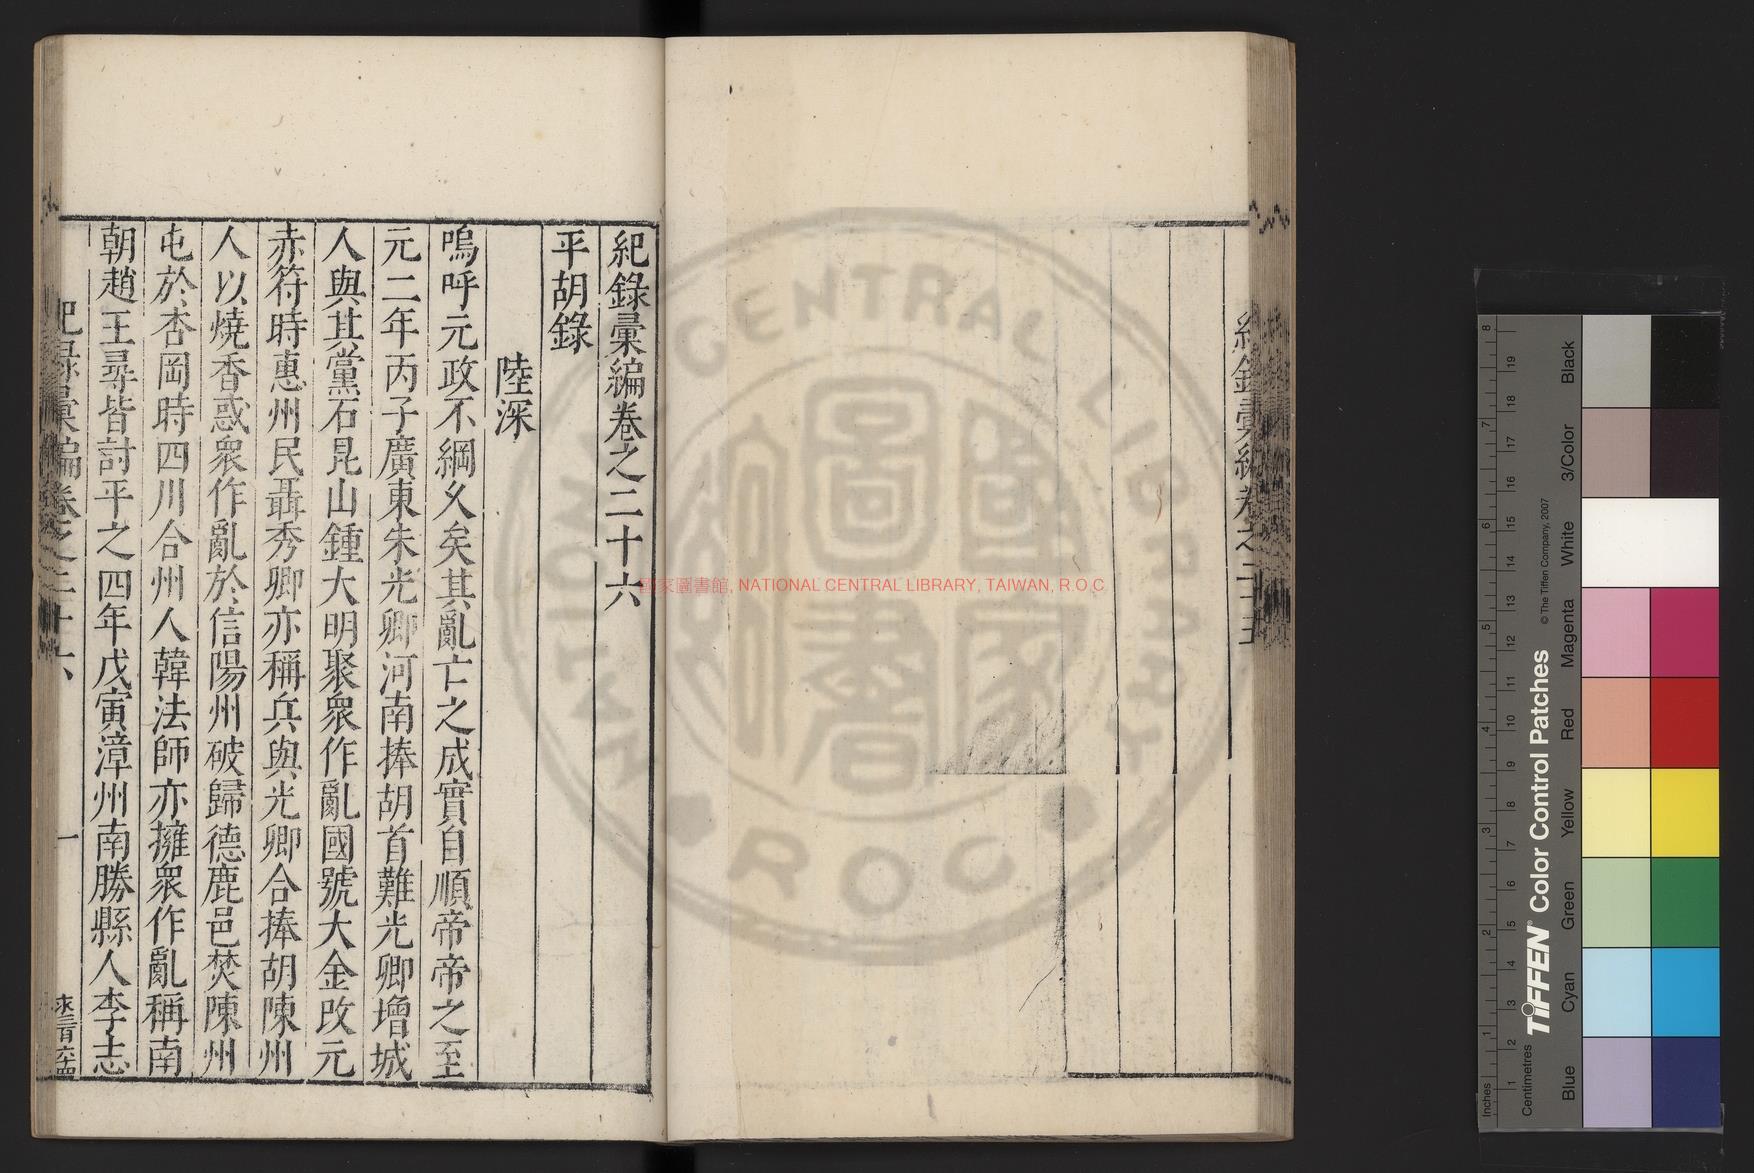 紀錄彙編卷之二十五
紀錄彙編卷之二十六
平胡錄
陸深
嗚呼元政不綱久矣其亂亡之成實自順帝帝之至
元二年丙子廣東朱光卿河南捧胡首難光卿增城
人與其黨石昆山鍾大明聚衆作亂國號大金改元
赤符時惠州民聶秀卿亦稱兵與光卿合捧胡陳州
人以燒香惑衆作亂於信陽州破歸德鹿邑焚陳州
屯於杏岡時四川合州人韓法師亦擁衆作亂稱南
朝趙王尋皆討平之四年戊寅漳州南勝縣人李志
紀錄彙編卷之二十六
一
國家圖書館, NATIONAL CENTRAL LIBRARY, TAIWAN, R.O.C
NATIONAL CENTRAL LIBRARY
R O C
國家圖書館
Inches
Centimetres
TIFFEN® Color Control Patches
© The Tiffen Company, 2007
Blue
Cyan
Green
Yellow
Red
Magenta
White
3/Color
Black